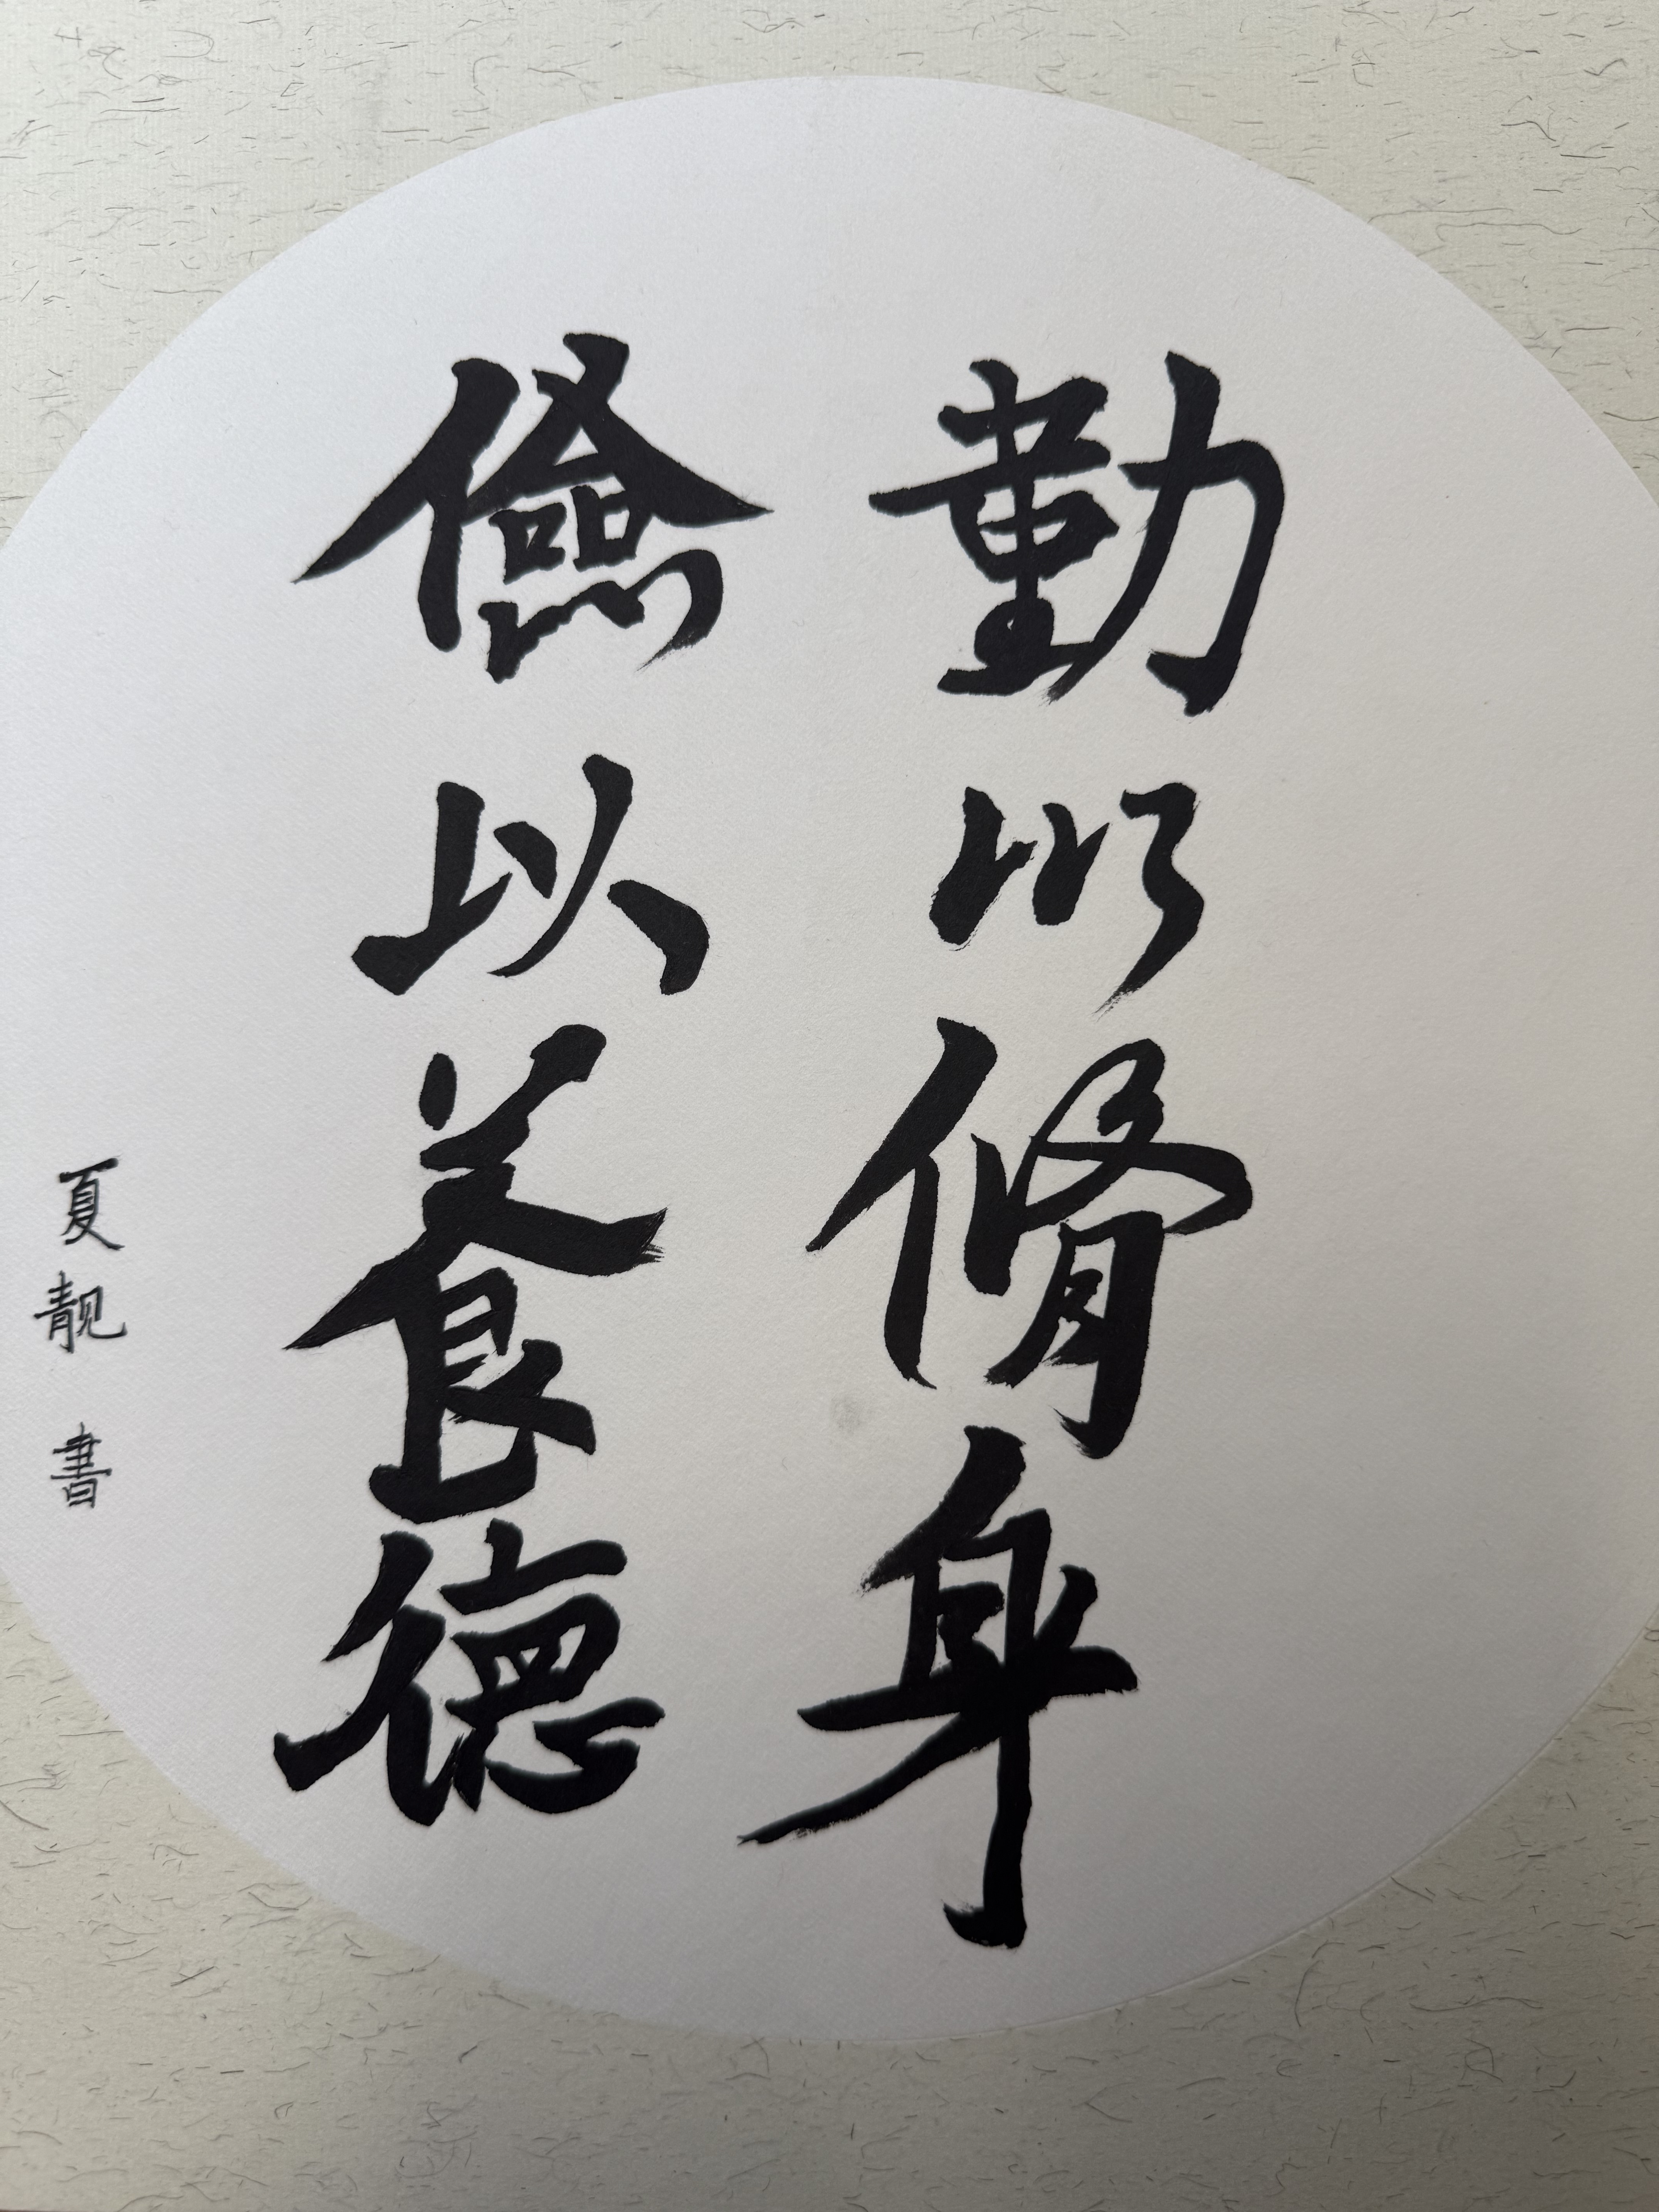 勤以脩身
儉以養德
夏靓 書